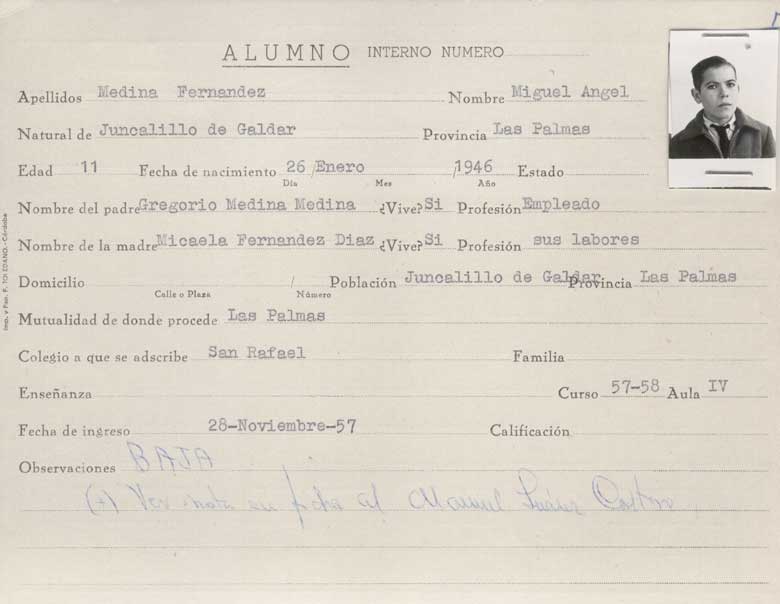 ALUMNO INTERNO NUMERO
Apellidos Medina Fernandez Nombre Miguel Angel
Natural de Juncalillo de Galdar Provincia Las Palmas
Edad 11 Fecha de nacimiento 26 / Enero / 1946 Estado
Día Mes Año
Nombre del padre Gregorio Medina Medina ¿Vive? Si Profesión Empleado
Nombre de la madre Micaela Fernandez Diaz ¿Vive? Si Profesión sus labores
Domicilio / Población Juncalillo de Galdar Provincia Las Palmas
Calle o Plaza Número
Mutualidad de donde procede Las Palmas
Colegio a que se adscribe San Rafael Familia
Enseñanza Curso 57-58 Aula IV
Fecha de ingreso 28-Noviembre-57 Calificación
Observaciones BAJA
(+) Ver nota en ficha al Manuel Suárez
Imp. y Pap. F. TOLEDANO.-Córdoba